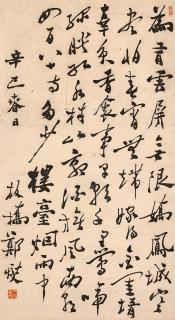 為有雲屏無限嬌鳳城寒
盡怕春宵無端嫁得金龜壻
辜負香衾事早朝千里鶯啼
綠映紅水村山郭酒旗風南朝
四百八十寺多少
樓臺烟雨中
辛巳春日
板橋鄭燮